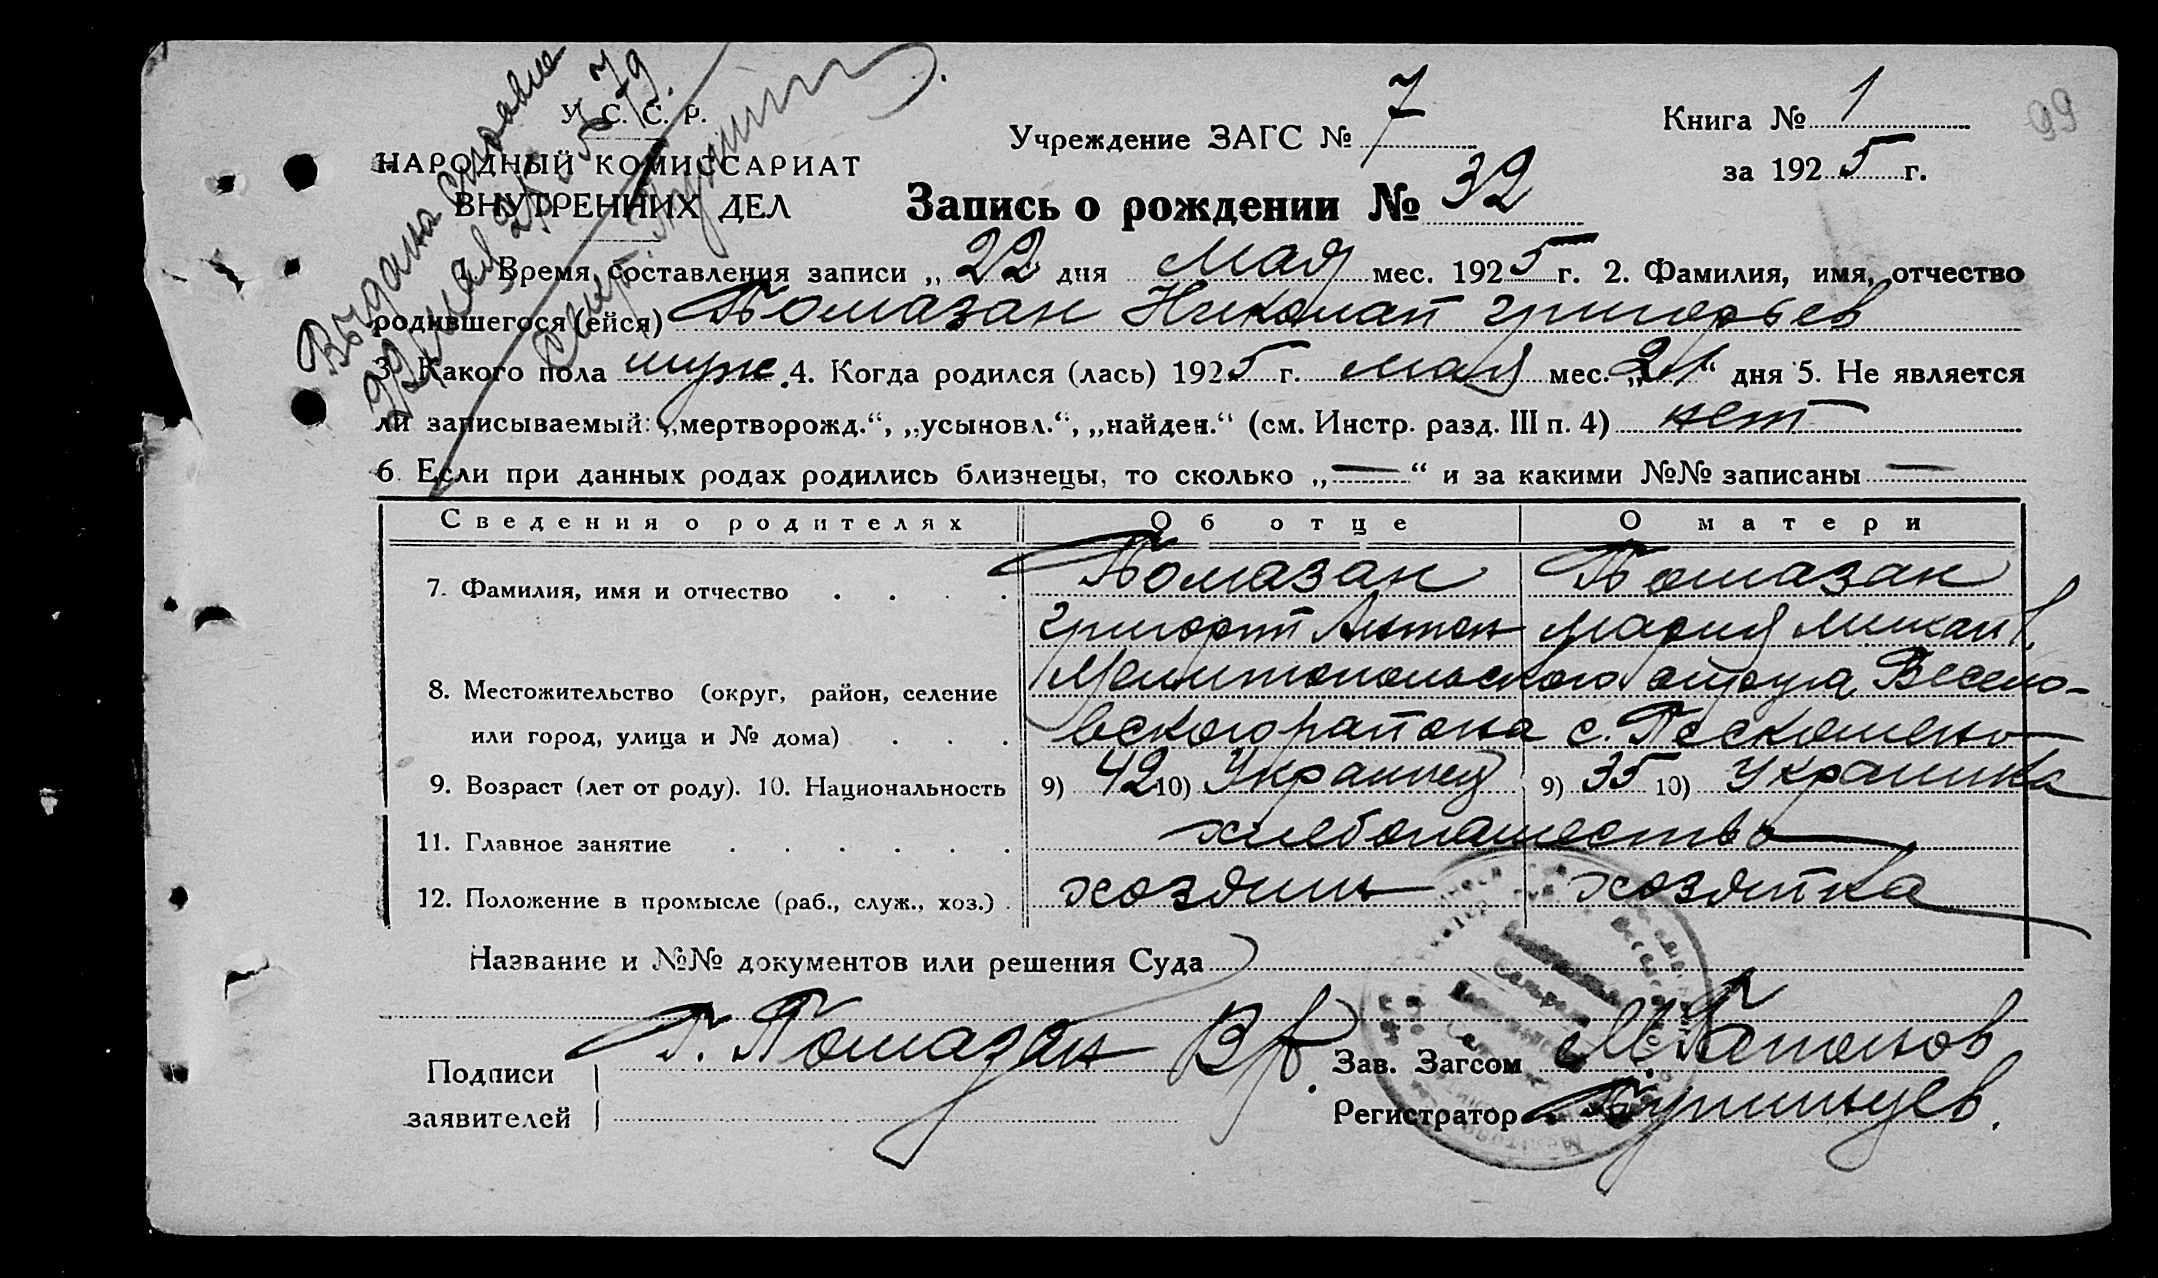 У. С. С. Р.
НАРОДНЫЙ КОМИССАРИАТ
ВНУТРЕННИХ ДЕЛ
Выдана справка
Учреждение ЗАГС № 7
Книга № 1
за 1925 г.
99
Запись о рождении № 32
1. Время составления записи „22 дня Мая мес. 1925 г. 2. Фамилия, имя, отчество
родившегося (ейся) Помазан Николай Григорьев
3. Какого пола муж. 4. Когда родился (лась) 1925 г. мая мес. „21“ дня 5. Не является
ли записываемый: „мертворожд.“, „усыновл.“, „найден.“ (см. Инстр. разд. III п. 4) нет
6. Если при данных родах родились близнецы, то сколько „—“ и за какими №№ записаны —
Сведения о родителях Об отце О матери
7. Фамилия, имя и отчество . . . . Помазан Помазан
Григорий Антон Мария Михайл.
8. Местожительство (округ, район, селение Мелитопольского округа, Весело-
или город, улица и № дома) . . . вского района с. Пескошено
9. Возраст (лет от роду). 10. Национальность 9) 42 10) Украинец 9) 35 10) Украинка
11. Главное занятие . . . . . . хлебопашество
12. Положение в промысле (раб., служ., хоз.) . хозяин хозяйка
Название и №№ документов или решения Суда
Подписи Г. Помазан Зав. Загсом
заявителей Регистратор